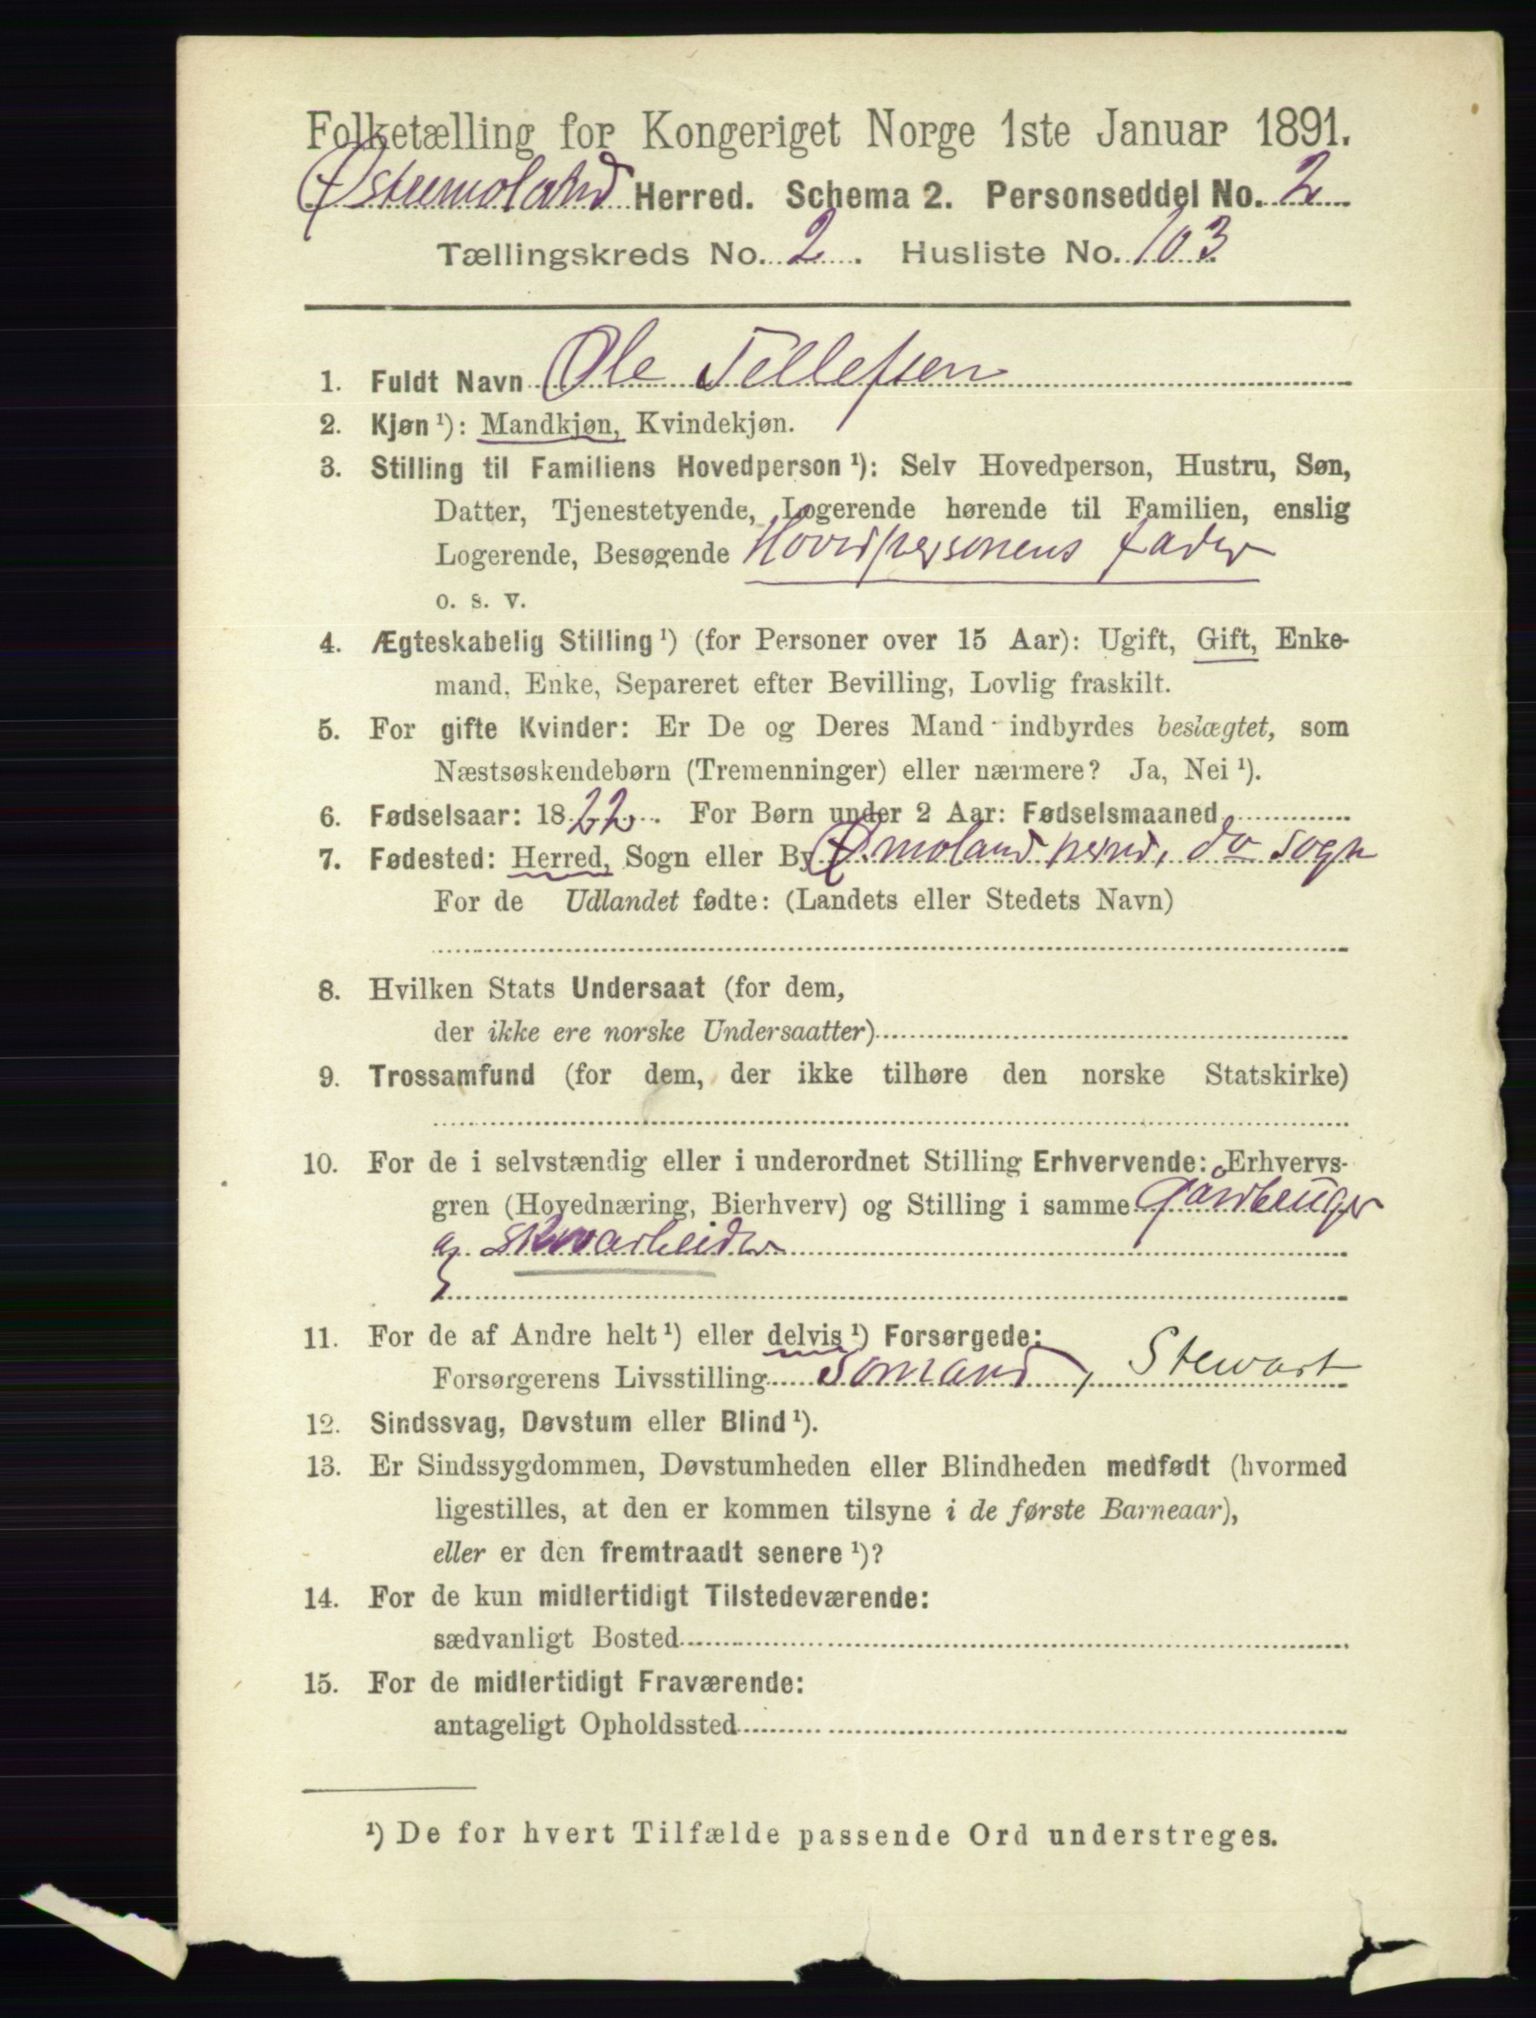 Folketælling for Kongeriget Norge 1ste Januar 1891.
Østremoland Herred. Schema 2. Personseddel No. 2
Tællingskreds No. 2. Husliste No. 103
1. Fuldt Navn Ole Tellefsen
2. Kjøn ¹): Mandkjøn, Kvindekjøn.
3. Stilling til Familiens Hovedperson ¹): Selv Hovedperson, Hustru, Søn,
Datter, Tjenestetyende, Logerende hørende til Familien, enslig
Logerende, Besøgende Hovedpersonens Fader
o. s. v.
4. Ægteskabelig Stilling ¹) (for Personer over 15 Aar): Ugift, Gift, Enke-
mand, Enke, Separeret efter Bevilling, Lovlig fraskilt.
5. For gifte Kvinder: Er De og Deres Mand indbyrdes beslægtet, som
Næstsøskendebørn (Tremenninger) eller nærmere? Ja, Nei ¹).
6. Fødselsaar: 1822. For Børn under 2 Aar: Fødselsmaaned
7. Fødested: Herred, Sogn eller By Ø.moland herred, do sogn
For de Udlandet fødte: (Landets eller Stedets Navn)
8. Hvilken Stats Undersaat (for dem,
der ikke ere norske Undersaatter)
9. Trossamfund (for dem, der ikke tilhøre den norske Statskirke)
10. For de i selvstændig eller i underordnet Stilling Erhvervende: Erhvervs-
gren (Hovednæring, Bierhverv) og Stilling i samme Gårdbruger
og skovarbeider
11. For de af Andre helt ¹) eller delvis ¹) Forsørgede:
Forsørgerens Livsstilling Sømand, Stewart
12. Sindssvag, Døvstum eller Blind ¹).
13. Er Sindssygdommen, Døvstumheden eller Blindheden medfødt (hvormed
ligestilles, at den er kommen tilsyne i de første Barneaar),
eller er den fremtraadt senere ¹)?
14. For de kun midlertidigt Tilstedeværende:
sædvanligt Bosted
15. For de midlertidigt Fraværende:
antageligt Opholdssted
¹) De for hvert Tilfælde passende Ord understreges.